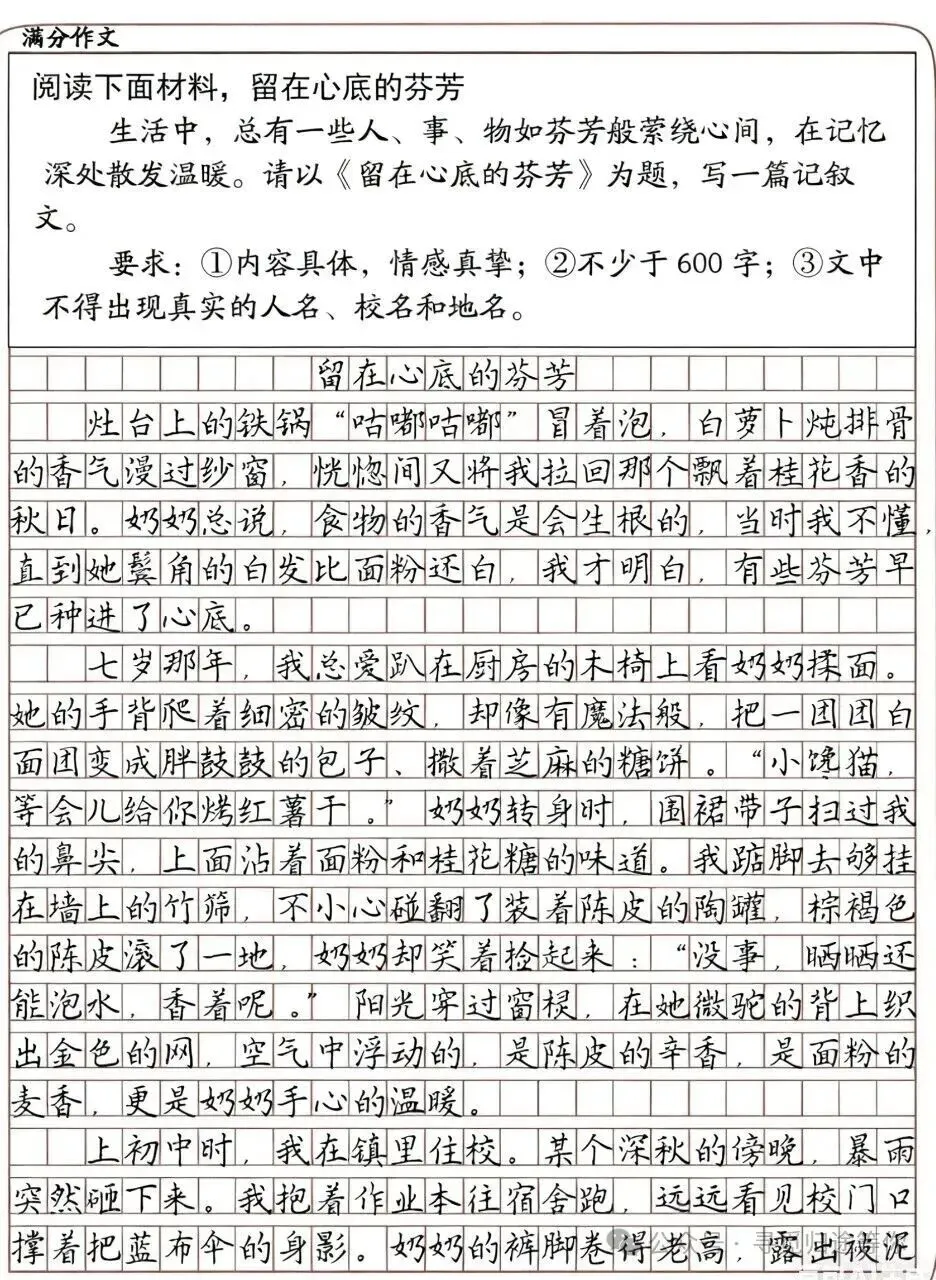 满分作文
阅读下面材料，留在心底的芬芳
生活中，总有一些人、事、物如芬芳般萦绕心间，在记忆
深处散发温暖。请以《留在心底的芬芳》为题，写一篇记叙
文。
要求：①内容具体，情感真挚；②不少于 600 字；③文中
不得出现真实的人名、校名和地名。
留在心底的芬芳
灶台上的铁锅“咕嘟咕嘟”冒着泡，白萝卜炖排骨
的香气漫过纱窗，恍惚间又将我拉回那个飘着桂花香的
秋日。奶奶总说，食物的香气是会生根的，当时我不懂，
直到她鬓角的白发比面粉还白，我才明白，有些芬芳早
已种进了心底。
七岁那年，我总爱趴在厨房的木椅上看奶奶揉面。
她的手背爬着细密的皱纹，却像有魔法般，把一团团白
面团变成胖鼓鼓的包子、撒着芝麻的糖饼。“小馋猫，
等会儿给你烤红薯干。”奶奶转身时，围裙带子扫过我
的鼻尖，上面沾着面粉和桂花糖的味道。我踮脚去够挂
在墙上的竹筛，不小心碰翻了装着陈皮的陶罐，棕褐色
的陈皮滚了一地，奶奶却笑着捡起来：“没事，晒晒还
能泡水，香着呢。”阳光穿过窗棂，在她微驼的背上织
出金色的网，空气中浮动的，是陈皮的辛香，是面粉的
麦香，更是奶奶手心的温暖。
上初中时，我在镇里住校。某个深秋的傍晚，暴雨
突然砸下来。我抱着作业本往宿舍跑，远远看见校门口
撑着把蓝布伞的身影。奶奶的裤脚卷得老高，露出被泥